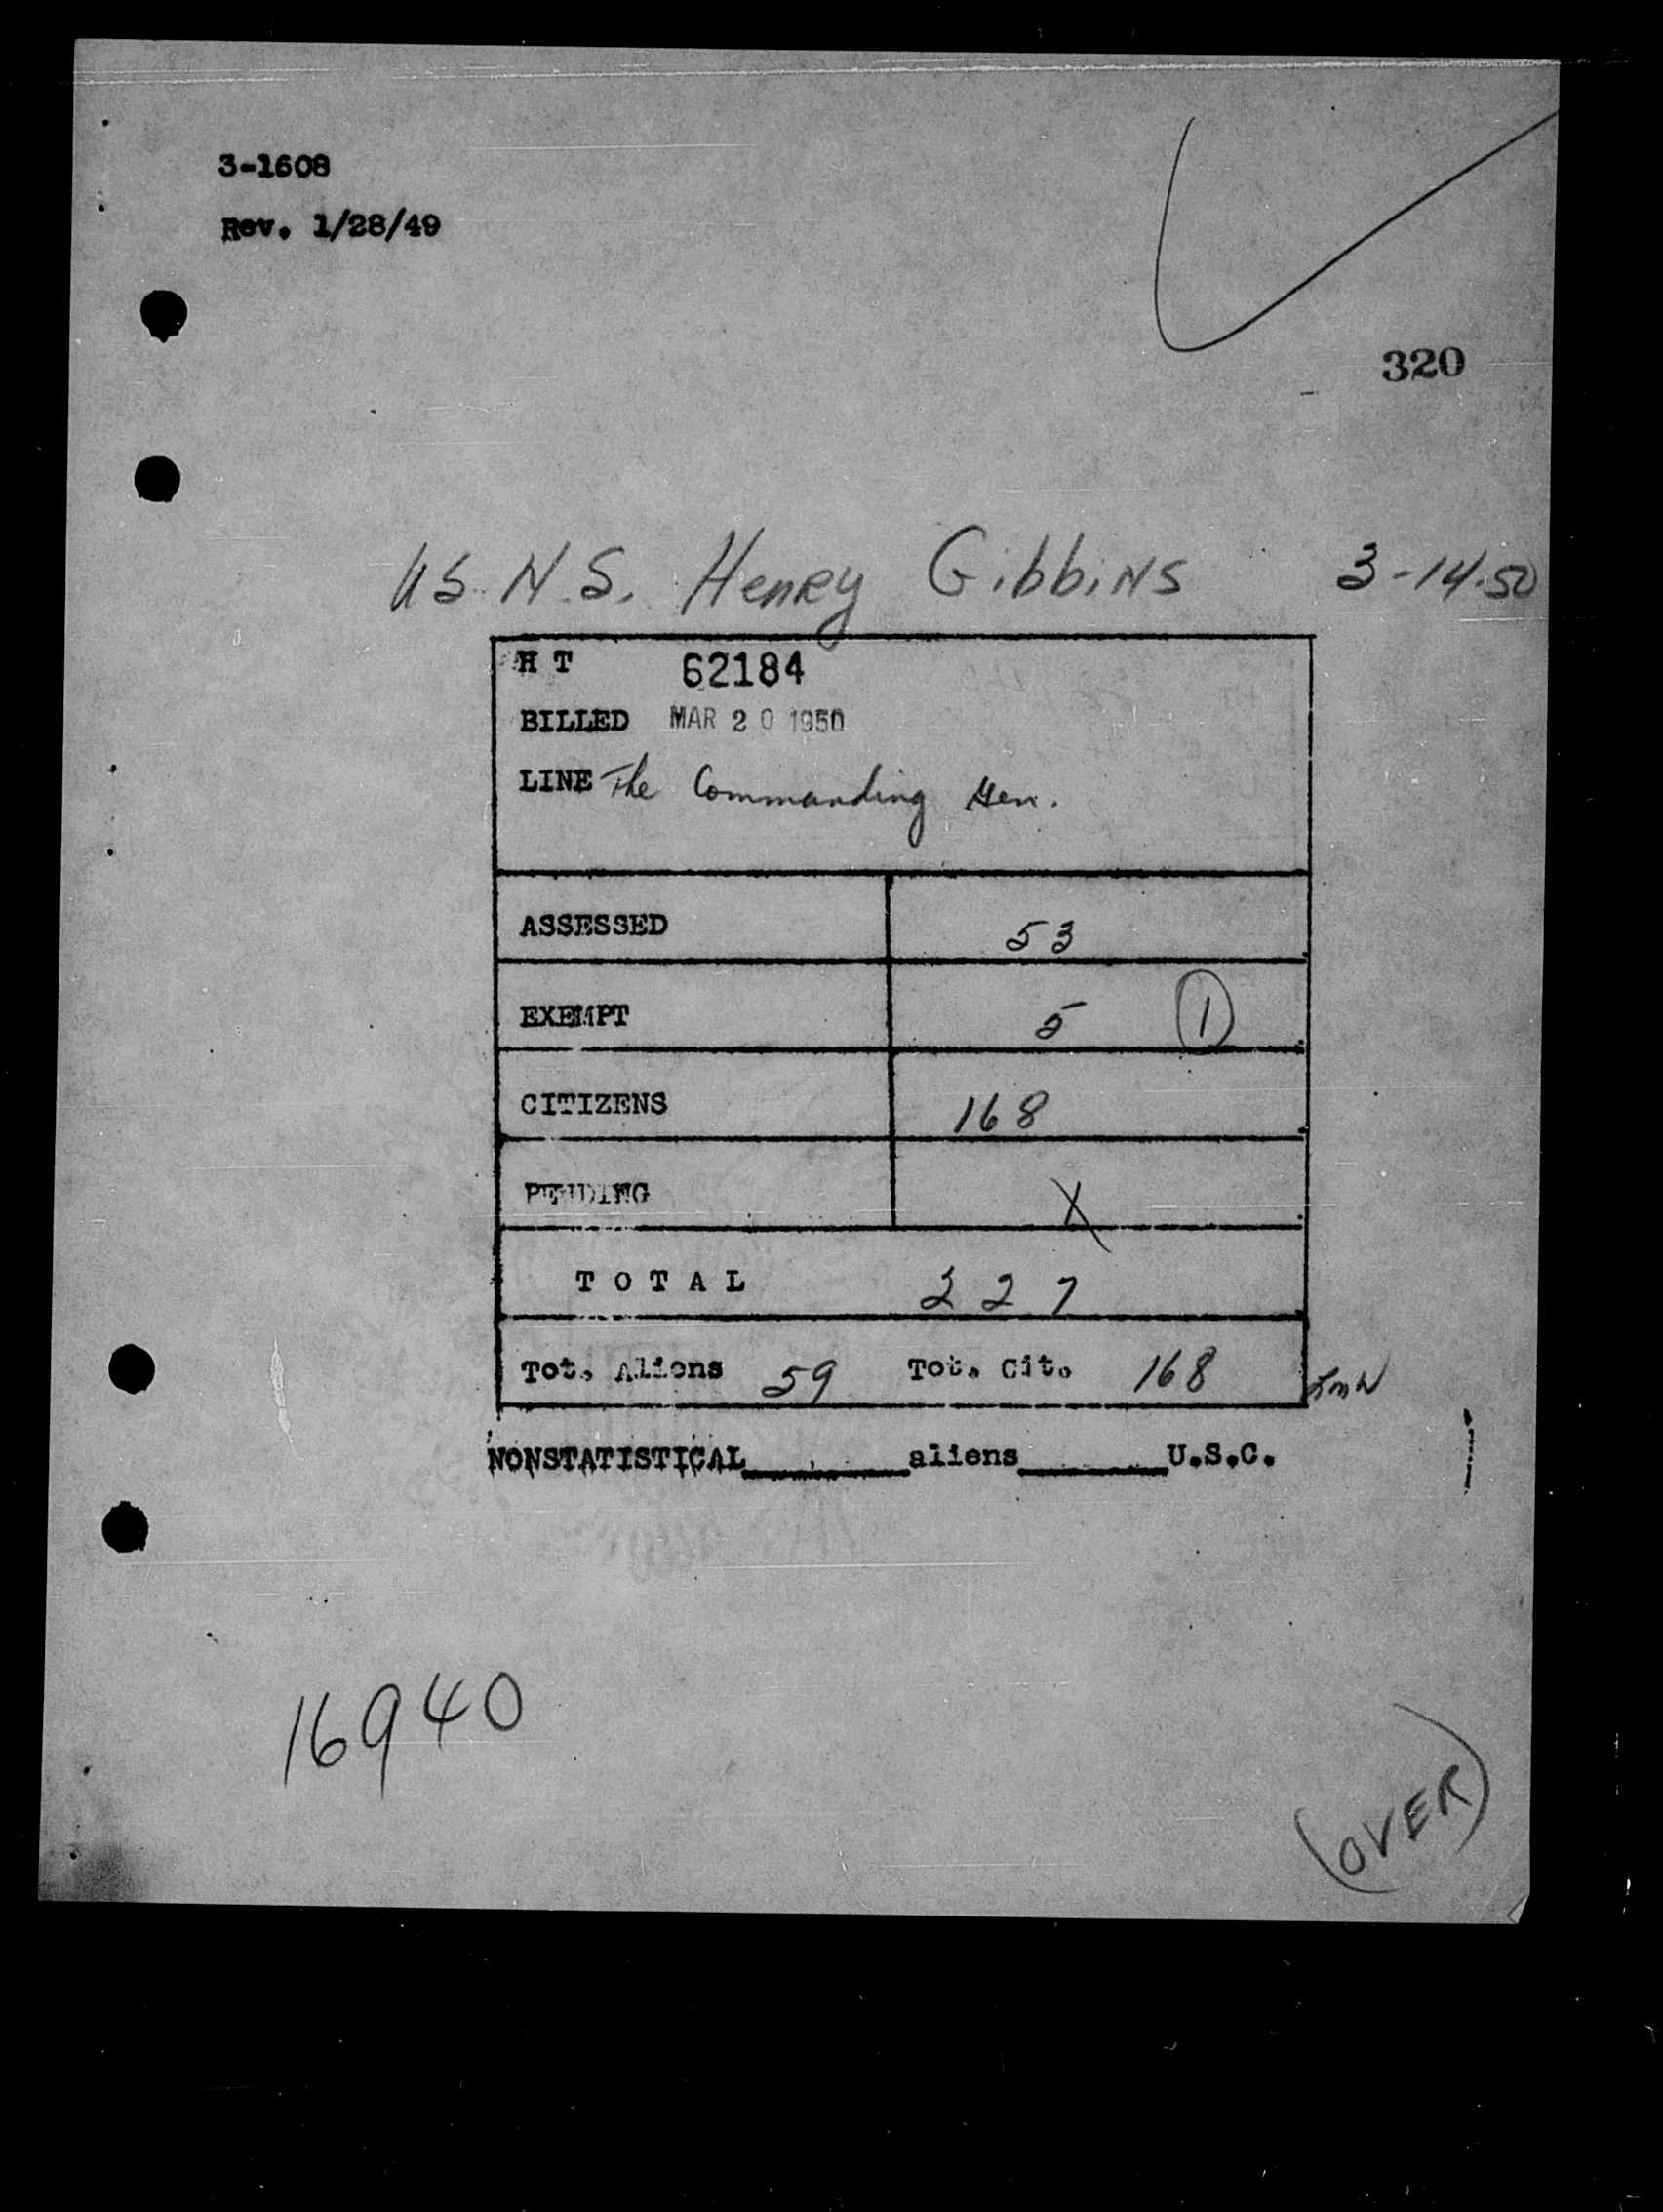 3-1608
Rev. 1/28/49
320
U.S.N.S. Henry Gibbins 3-14-50
H T 62184
BILLED MAR 20 1950
LINE The Commanding Gen.
ASSESSED 53
EXEMPT 5 1
CITIZENS 168
PENDING X
TOTAL 227
Tot. Aliens 59 Tot. Cit. 168
NONSTATISTICAL______aliens______U.S.C.
16940
(OVER)